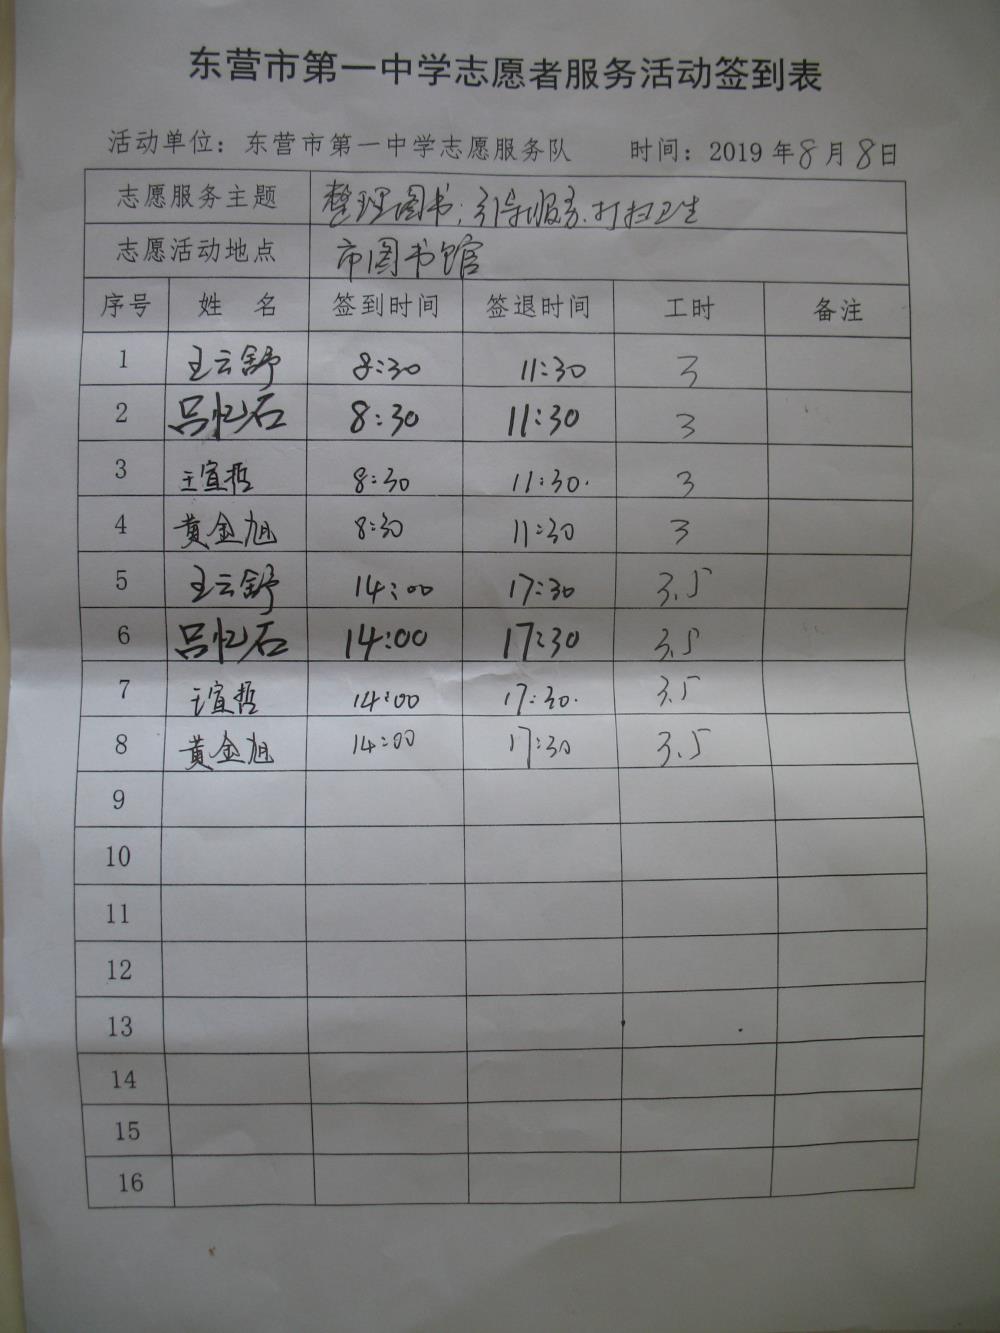 东营市第一中学志愿者服务活动签到表
活动单位：东营市第一中学志愿服务队 时间：2019年8月8日
志愿服务主题 整理图书，引导服务，打扫卫生
志愿活动地点 市图书馆
序号 姓 名 签到时间 签退时间 工时 备注
1 王云舒 8:30 11:30 3
2 吕忆石 8:30 11:30 3
3 王宣哲 8:30 11:30. 3
4 黄金旭 8:30 11:30 3
5 王云舒 14:00 17:30 3.5
6 吕忆石 14:00 17:30 3.5
7 王宣哲 14:00 17:30. 3.5
8 黄金旭 14:00 17:30 3.5
9
10
11
12
13
14
15
16